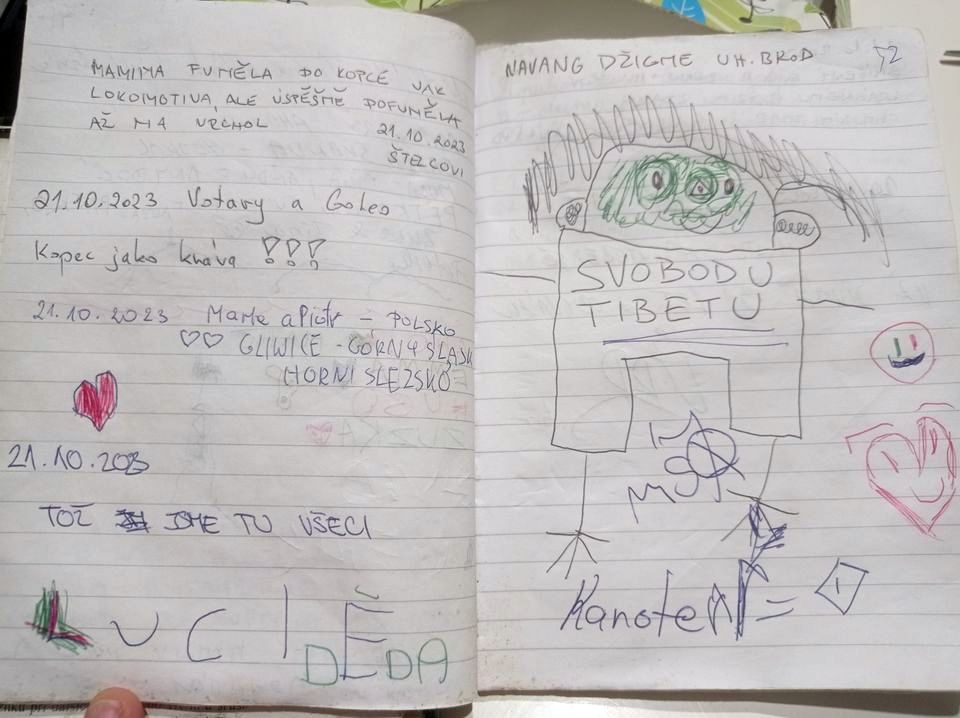 MAMINA FUNĚLA DO KOPCE JAK
LOKOMOTIVA, ALE ÚSPĚŠNĚ DOFUNĚLA
AŽ NA VRCHOL
21.10.2023
ŠTELCOVI
21.10.2023 Votavy a Goleo
Kopec jako kráva !!!
21.10.2023 Marne a Piotr - POLSKO
GLIWICE - GÓRNY ŚLĄSK
HORNÍ SLEZSKO
21.10.203
TOŽ JSME TU VŠECI
LUCIE
DĚDA
NAVANG DŽIGME UH. BROD
SVOBODU
TIBETU